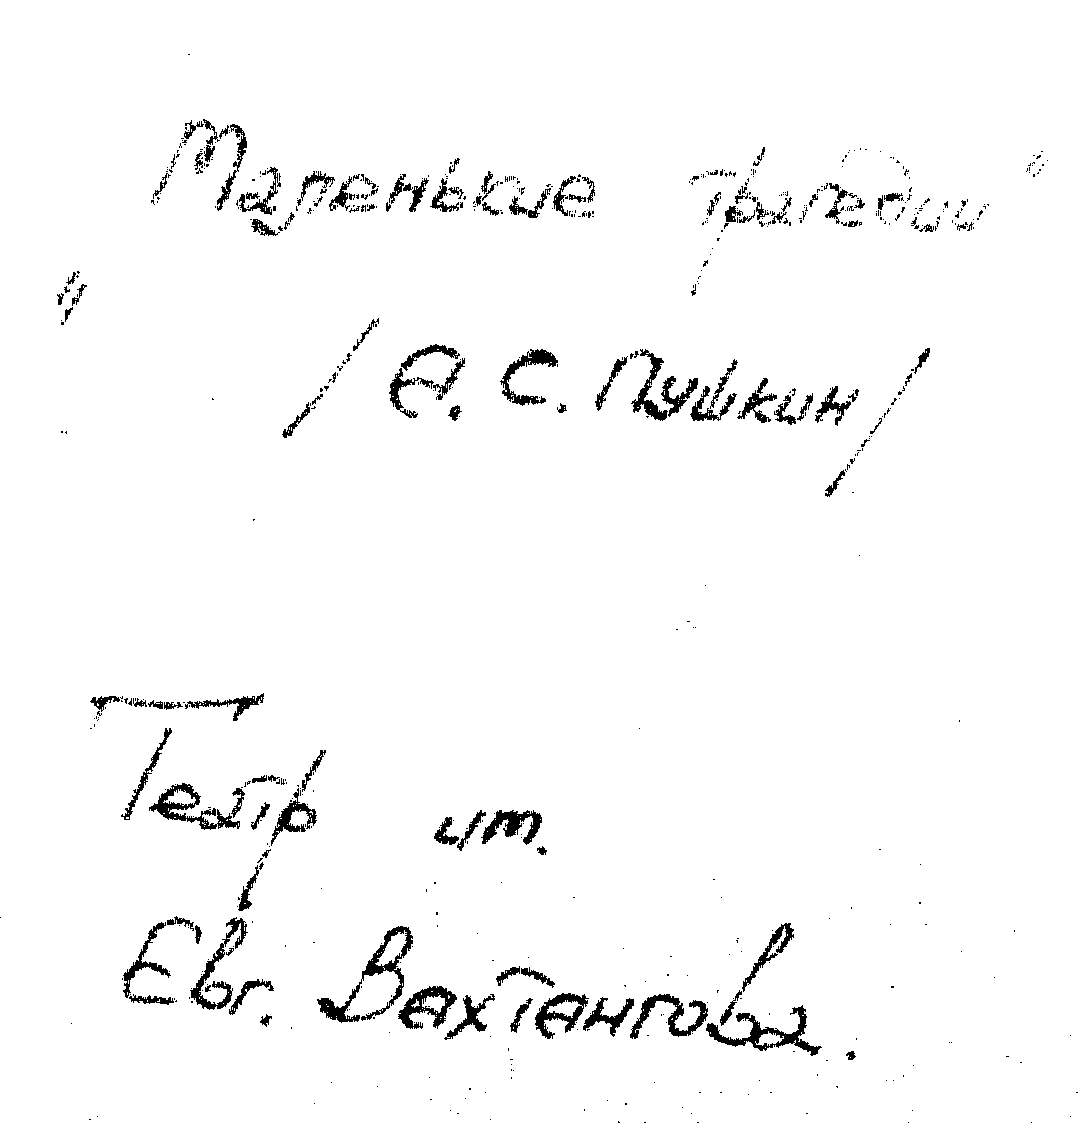 "Маленькие трагедии"
/А. С. Пушкин/
Театр им.
Евг. Вахтангова.